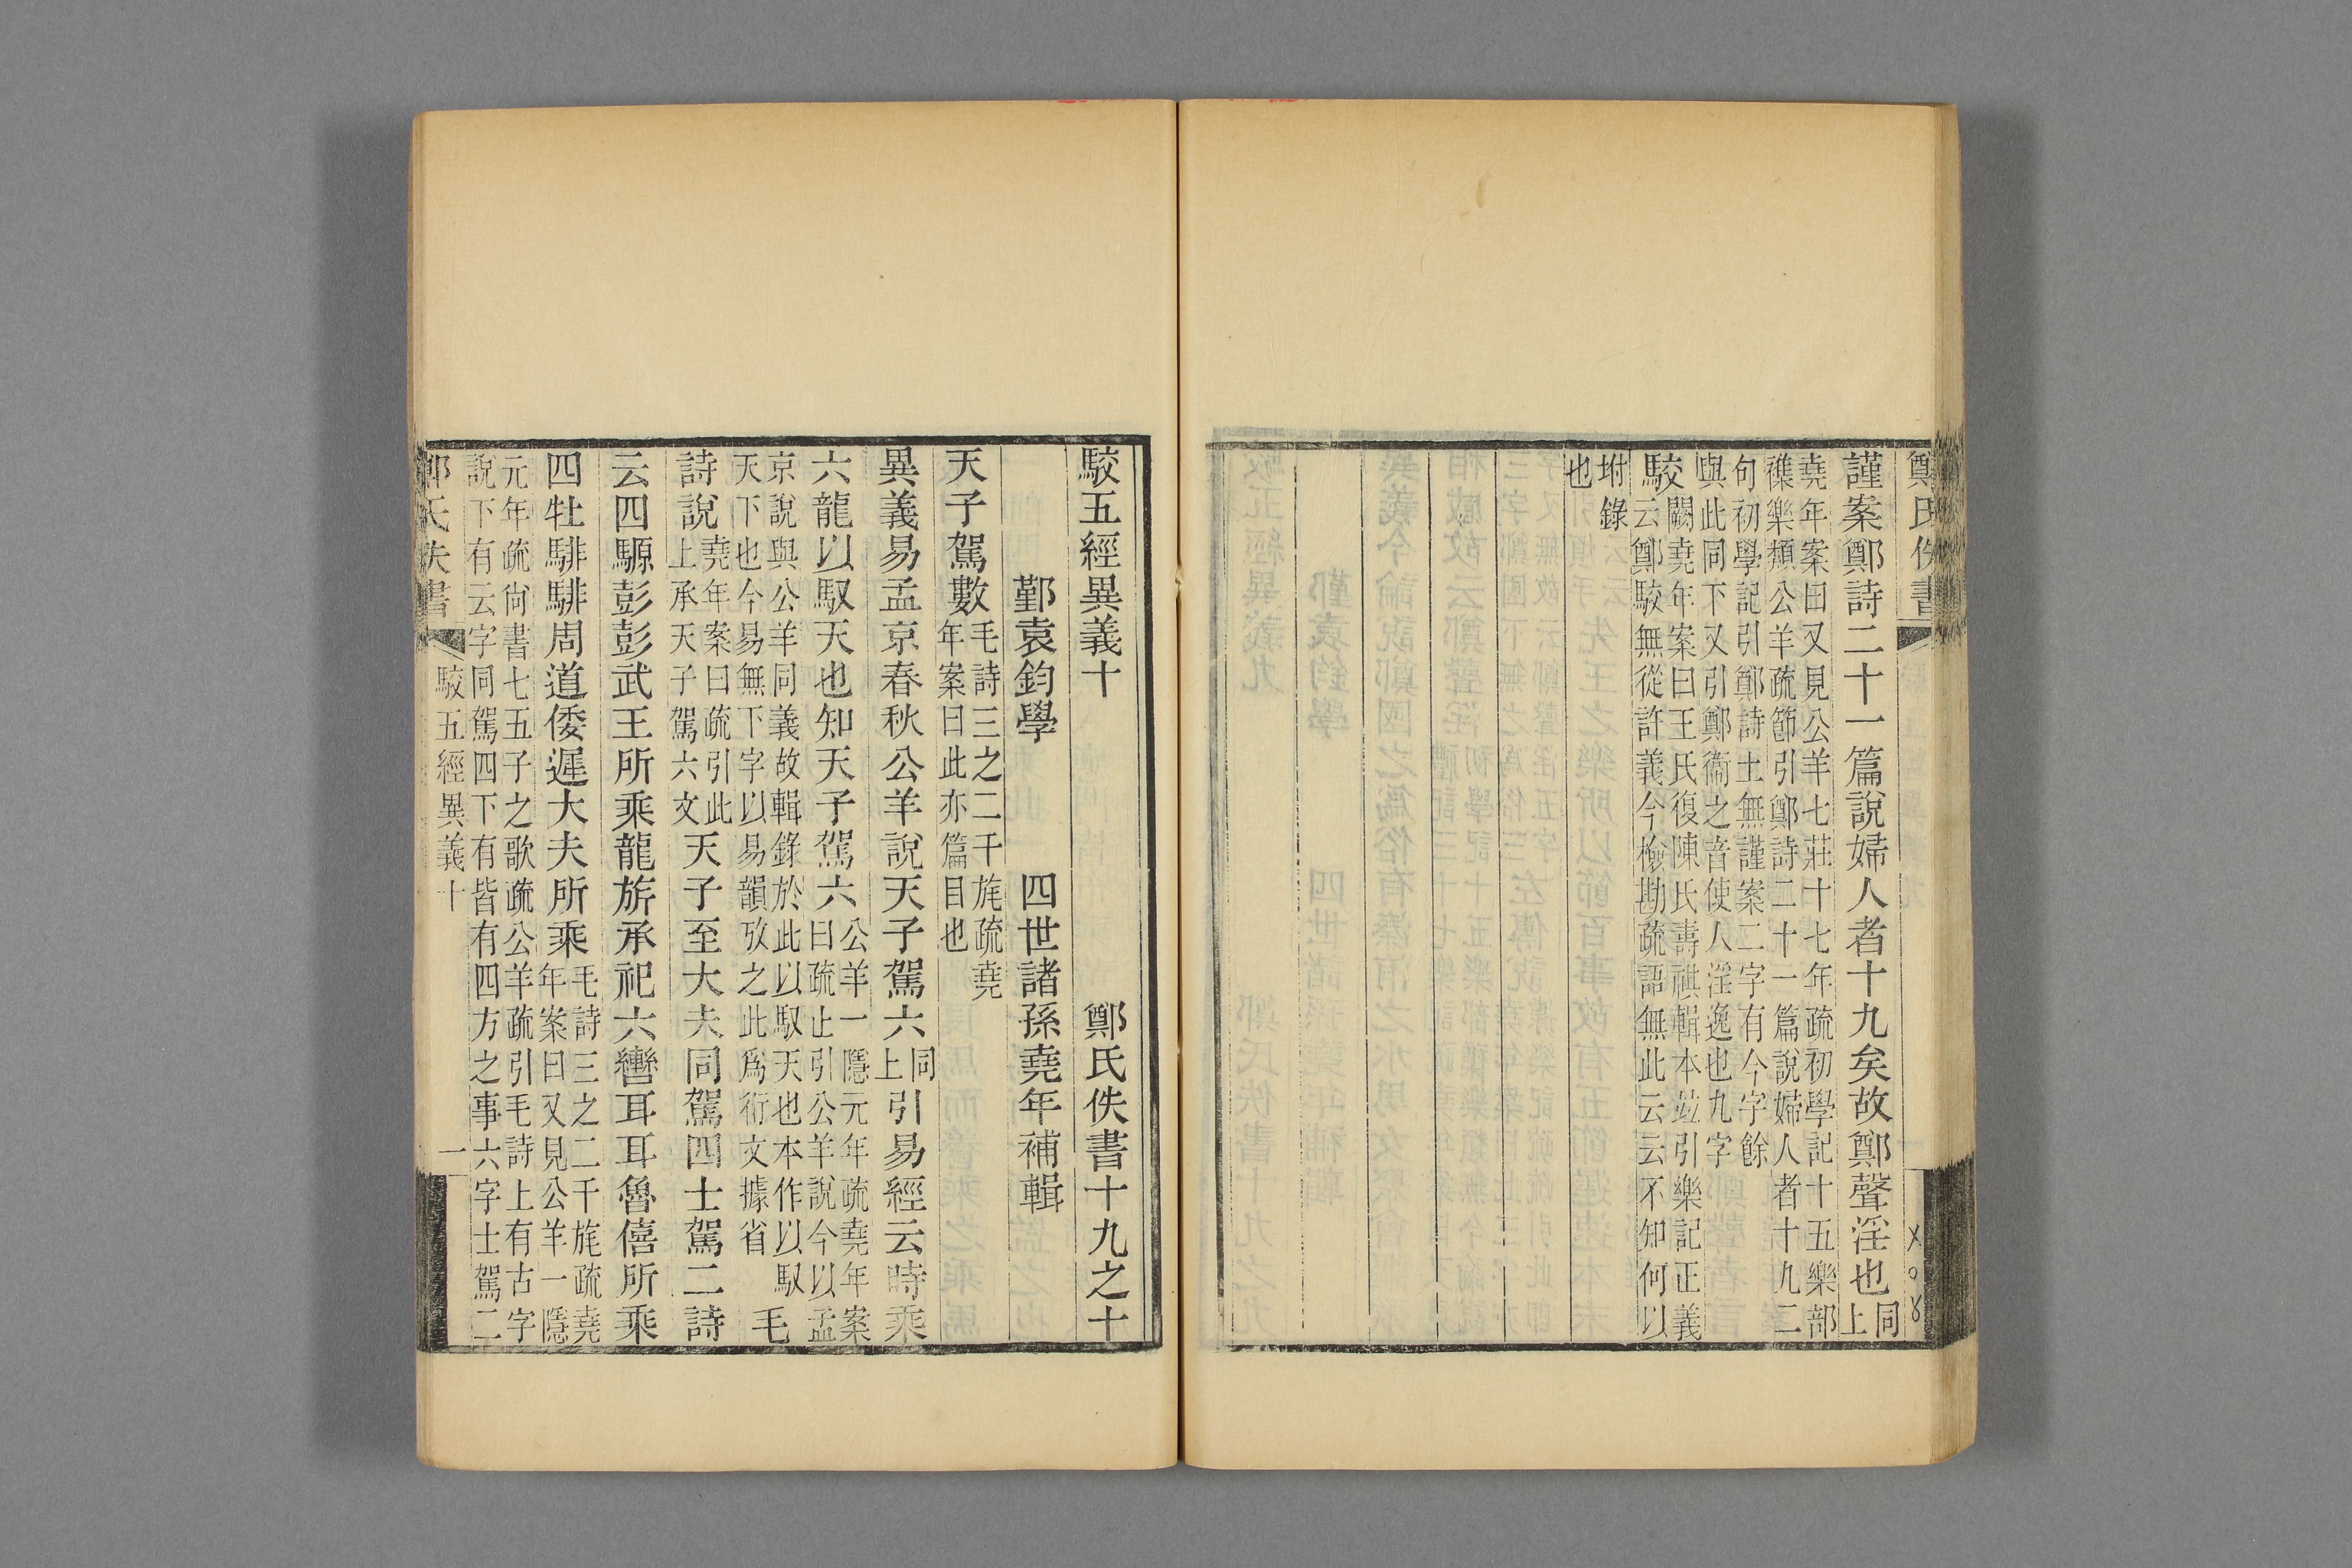 鄭氏佚書
謹案鄭詩二十一篇說婦人者十九矣故鄭聲淫也同上
堯年案曰又見公羊七莊十七年疏初學記十五樂部
襍樂類公羊疏節引鄭詩二十一篇說婦人者十九二
句初學記引鄭詩上無謹案二字有今字餘
與此同下又引鄭衞之音使人淫逸也九字
駮闕堯年案曰王氏復陳氏壽祺輯本竝引樂記正義
云鄭駮無從許義今檢勘疏語無此云云不知何以
坿錄
也
駮五經異義十 鄭氏佚書十九之十
鄞袁鈞學 四世諸孫堯年補輯
天子駕數毛詩三之二干旄疏堯
年案曰此亦篇目也
異義易孟京春秋公羊說天子駕六同上引易經云時乘
六龍以馭天也知天子駕六公羊一隱元年疏堯年案
曰疏止引公羊說今以孟
京說與公羊同義故輯錄於此以馭天也本作以馭
天下也今易無下字以易韻攷之此爲衍文據省 毛
詩說堯年案曰疏引此
上承天子駕六文天子至大夫同駕四士駕二詩
云四騵彭彭武王所乘龍旂承祀六轡耳耳魯僖所乘
四牡騑騑周道倭遲大夫所乘毛詩三之二干旄疏堯
年案曰又見公羊一隱
元年疏尙書七五子之歌疏公羊疏引毛詩上有古字
說下有云字同駕四下有皆有四方之事六字士駕二
鄭氏佚書 駮五經異義十 一